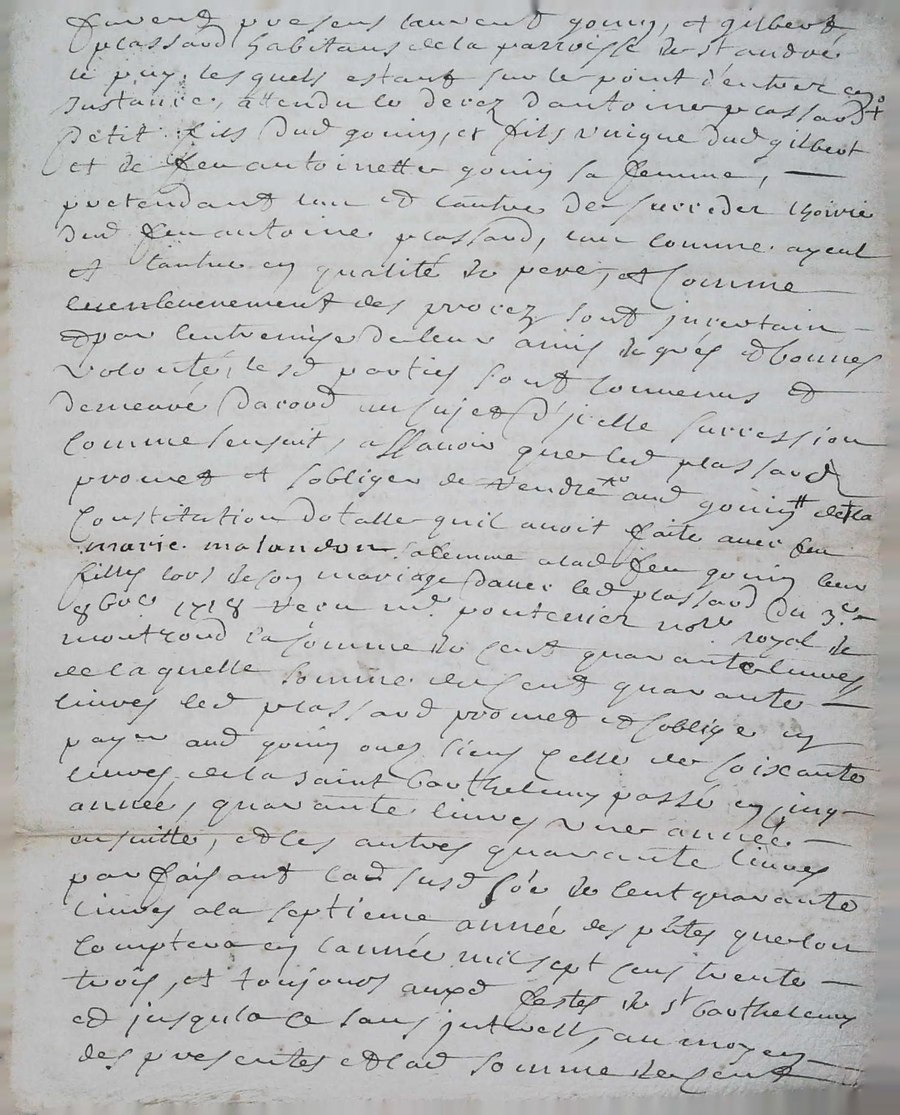 furent presens laurent gonin, et gilbert
plassard habitans de la parroisse de st andre
le puy, lesquels estant sur le point d'entrer en
instance, attendu le decez d'antoine plassard +
petit fils dud gonin, et fils unique dud gilbert
et de feu antoinette gonin sa femme, —
pretendant lun et lautre de succeder lhoirie
dud feu antoine plassard, lun comme ayeul
et lautre en qualité de pere, et comme
levenement des procez sont incertain —
et par lentremise de leur amis de gré et bonnes
volonté, lesd parties sont convenus et
demeuré dacord au sujet d'jcelle succession
comme sensuit, assavoir que led plassard
promet et sobliger de rendre aud gonin de la
constitution dotalle quil avoit faite avec feu
marie malandon sa femme a lad feu gonin leur
fille lors de son mariage davec led plassard du 3e
8bre 1718 receu me pontenier nore royal de
montrond la somme de cent quarante livres
de laquelle somme de cent quarante —
livres led plassard promet et soblige en
payer aud gonin ou es siens celle de soixante
livres de la saint barthelemy passé en cinq —
année, quarante livres une année —
ensuitte, et les autres quarante livres
parfaisant lad susd soe de cent quarante
livres a la septieme année des pntes que lon
comptera en lannée mil sept cens trente —
trois, et toujours auxd festes de st barthelemy
et jusqula ce sans jnterest, au moyen —
des presentes et lad somme de cent